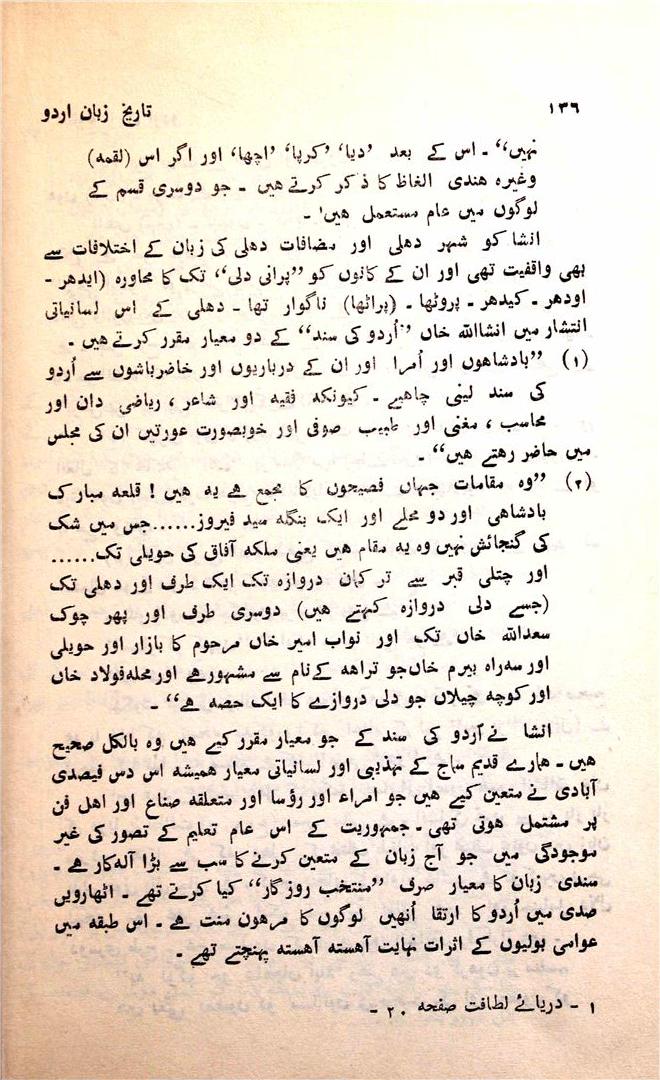 ۱۳٦ تاریخ زبان اردو
نہیں‘‘ ۔ اس کے بعد ’دیا‘ ’کرپا‘ ’اچھا‘ اور اگر اس (لقمه)
وغیرہ ہندی الفاظ کا ذکر کرتے ہیں ۔ جو دوسری قسم کے
لوگوں میں عام مستعمل ہیں¹ ۔
انشا کو شہر دہلی اور مضافات دہلی کی زبان کے اختلافات سے
بھی واقفیت تھی اور ان کے کانوں کو ’’پرانی دلی‘‘، تک کا محاورہ (ایدھر ۔
اودھر ۔ کیدھر ۔ پروٹھا ۔ (پراٹھا) ناگوار تھا ۔ دہلی کے اس لسانیاتی
انتشار میں انشااللہ خاں ’’اُردو کی سند‘‘ کے دو معیار مقرر کرتے ہیں ۔
(۱) ’’بادشاہوں اور اُمرا اور ان کے درباریوں اور حاضرباشوں سے اُردو
کی سند لینی چاہیے ۔ کیونکہ فقیہ اور شاعر ، ریاضی دان اور
محاسب ، مغنی اور طبیب صوفی اور خوبصورت عورتیں ان کی مجلس
میں حاضر رہتے ہیں‘‘ ۔
(۲) ’’وہ مقامات جہاں فصیحوں کا مجمع ہے یہ ہیں ! قلعہ مبارک
بادشاہی اور دو محلے اور ایک بنگلہ سید فیروز......جس میں شک
کی گنجائش نہیں وہ یہ مقام ہیں یعنی ملکہ آفاق کی حویلی تک......
اور چتلی قبر سے ترکمان دروازہ تک ایک طرف اور دہلی تک
(جسے دلی دروازہ کہتے ہیں) دوسری طرف اور پھر چوک
سعداللہ خاں تک اور نواب امیر خاں مرحوم کا بازار اور حویلی
اور سہ راہ بیرم خاں جو تراھہ کے نام سے مشہور ہے اور محلہ فولاد خاں
اور کوچہ چیلاں جو دلی دروازے کا ایک حصہ ہے‘‘ ۔
انشا نے اُردو کی سند کے جو معیار مقرر کیے ہیں وہ بالکل صحیح
ہیں ۔ ہمارے قدیم سماج کے تہذیبی اور لسانیاتی معیار ہمیشہ اس دس فیصدی
آبادی نے متعین کیے ہیں جو امراء اور رؤسا اور متعلقہ صناع اور اہل فن
پر مشتمل ہوتی تھی ۔ جمہوریت کے اس عام تعلیم کے تصور کی غیر
موجودگی میں جو آج زبان کے متعین کرنے کا سب سے بڑا آلہ کار ہے ۔
سندی زبان کا معیار صرف ’’منتخب روزگار‘‘ کیا کرتے تھے ۔ اٹھارویں
صدی میں اُردو کا ارتقا اُنھیں لوگوں کا مرہون منت ہے ۔ اس طبقہ میں
عوامی بولیوں کے اثرات نہایت آہستہ آہستہ پہنچتے تھے ۔
۱ ۔ دریائے لطافت صفحہ ۲۰ ۔